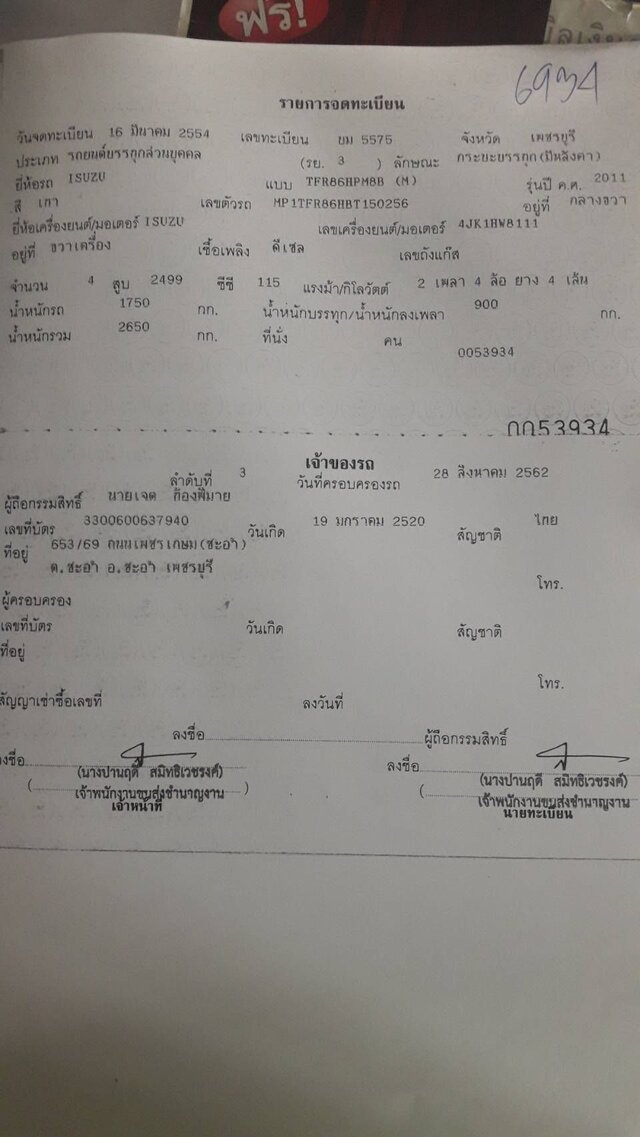 ฟรี!
6934
รายการจดทะเบียน
วันจดทะเบียน 16 มีนาคม 2554 เลขทะเบียน บม 5575 จังหวัด เพชรบุรี
ประเภท รถยนต์บรรทุกส่วนบุคคล (รย. 3 ) ลักษณะ กระบะบรรทุก(มีหลังคา)
ยี่ห้อรถ ISUZU แบบ TFR86HPM8B (M) รุ่นปี ค.ศ. 2011
สี เทา เลขตัวรถ MP1TFR86HBT150256 อยู่ที่ กลางขวา
ยี่ห้อเครื่องยนต์/มอเตอร์ ISUZU เลขเครื่องยนต์/มอเตอร์ 4JK1HW8111
อยู่ที่ ขวาเครื่อง เชื้อเพลิง ดีเซล เลขถังแก๊ส
จำนวน 4 สูบ 2499 ซีซี 115 แรงม้า/กิโลวัตต์ 2 เพลา 4 ล้อ ยาง 4 เส้น
น้ำหนักรถ 1750 กก. น้ำหนักบรรทุก/น้ำหนักลงเพลา 900 กก.
น้ำหนักรวม 2650 กก. ที่นั่ง คน
0053934
0053934
เจ้าของรถ
ลำดับที่ 3 วันที่ครอบครองรถ 28 สิงหาคม 2562
ผู้ถือกรรมสิทธิ์ นายเจต ก้องพิมาย
เลขที่บัตร 3300600637940 วันเกิด 19 มกราคม 2520 สัญชาติ ไทย
ที่อยู่ 653/69 ถนนเพชรเกษม(ชะอำ)
ต.ชะอำ อ.ชะอำ เพชรบุรี
โทร.
ผู้ครอบครอง
เลขที่บัตร วันเกิด สัญชาติ
ที่อยู่
โทร.
สัญญาเช่าซื้อเลขที่ ลงวันที่
ลงชื่อ ผู้ถือกรรมสิทธิ์
ลงชื่อ ลงชื่อ
(นางปานฤดี สมิทธิเวชรงค์) (นางปานฤดี สมิทธิเวชรงค์)
( เจ้าพนักงานขนส่งชำนาญงาน ) ( เจ้าพนักงานขนส่งชำนาญงาน
เจ้าหน้าที่ นายทะเบียน